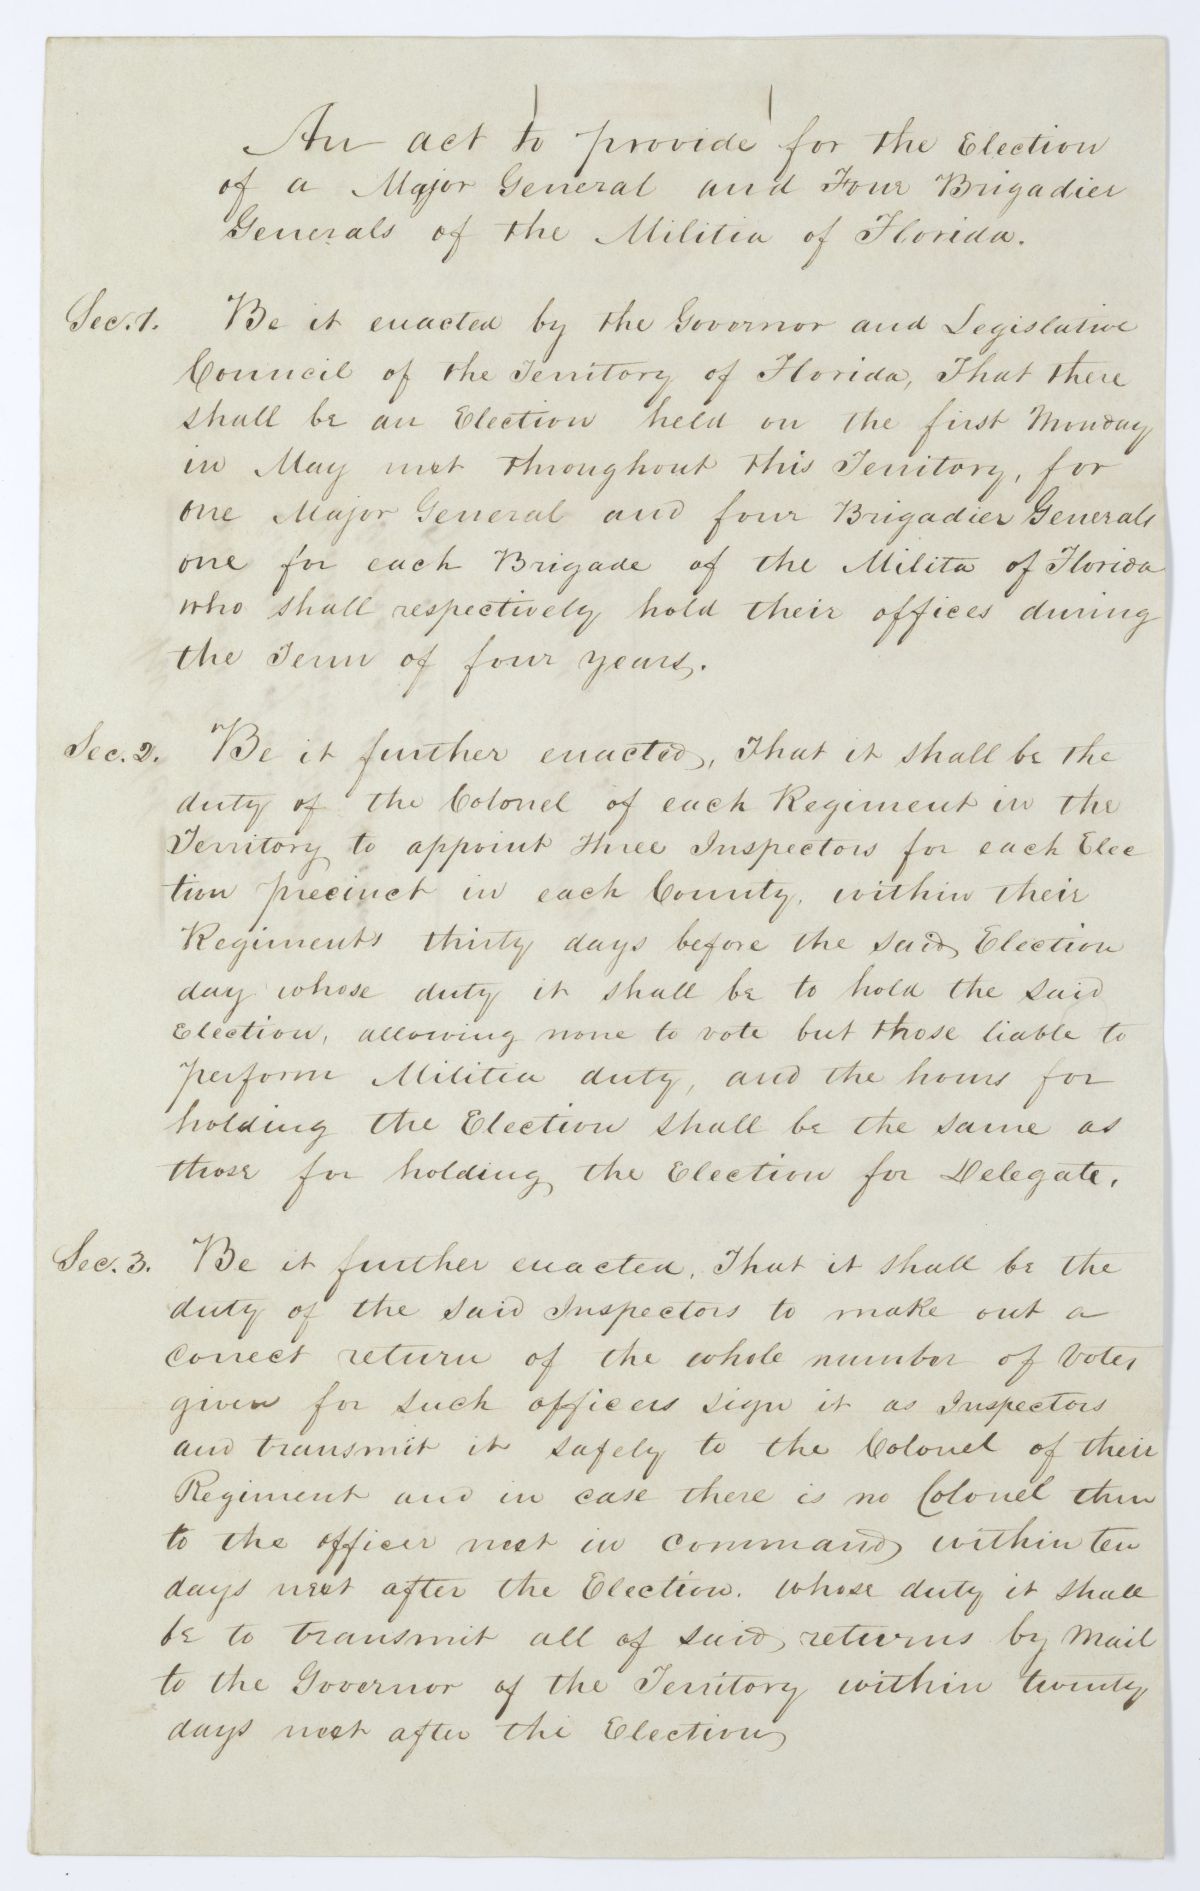 An act to provide for the Election
of a Major General and Four Brigadier
Generals of the Militia of Florida.
Sec. 1. Be it enacted by the Governor and Legislative
Council of the Territory of Florida, That there
shall be an Election held on the first Monday
in May next throughout this Territory, for
one Major General and four Brigadier Generals
one for each Brigade of the Milita of Florida
who shall respectively hold their offices during
the Term of four years.
Sec. 2. Be it further enacted, That it shall be the
duty of the Colonel of each Regiment in the
Territory to appoint three Inspectors for each Elec
tion precinct in each County, within their
Regiments thirty days before the said Election
day whose duty it shall be to hold the said
Election, allowing none to vote but those liable to
perform Militia duty, and the hours for
holding the Election shall be the same as
those for holding the Election for Delegate.
Sec. 3. Be it further enacted, That it shall be the
duty of the said Inspectors to make out a
correct return of the whole number of votes
given for such officers sign it as Inspectors
and transmit it safely to the Colonel of their
Regiment and in case there is no Colonel then
to the officer next in command within ten
days next after the Election. whose duty it shall
be to transmit all of said returns by Mail
to the Governor of the Territory within twenty
days next after the Election